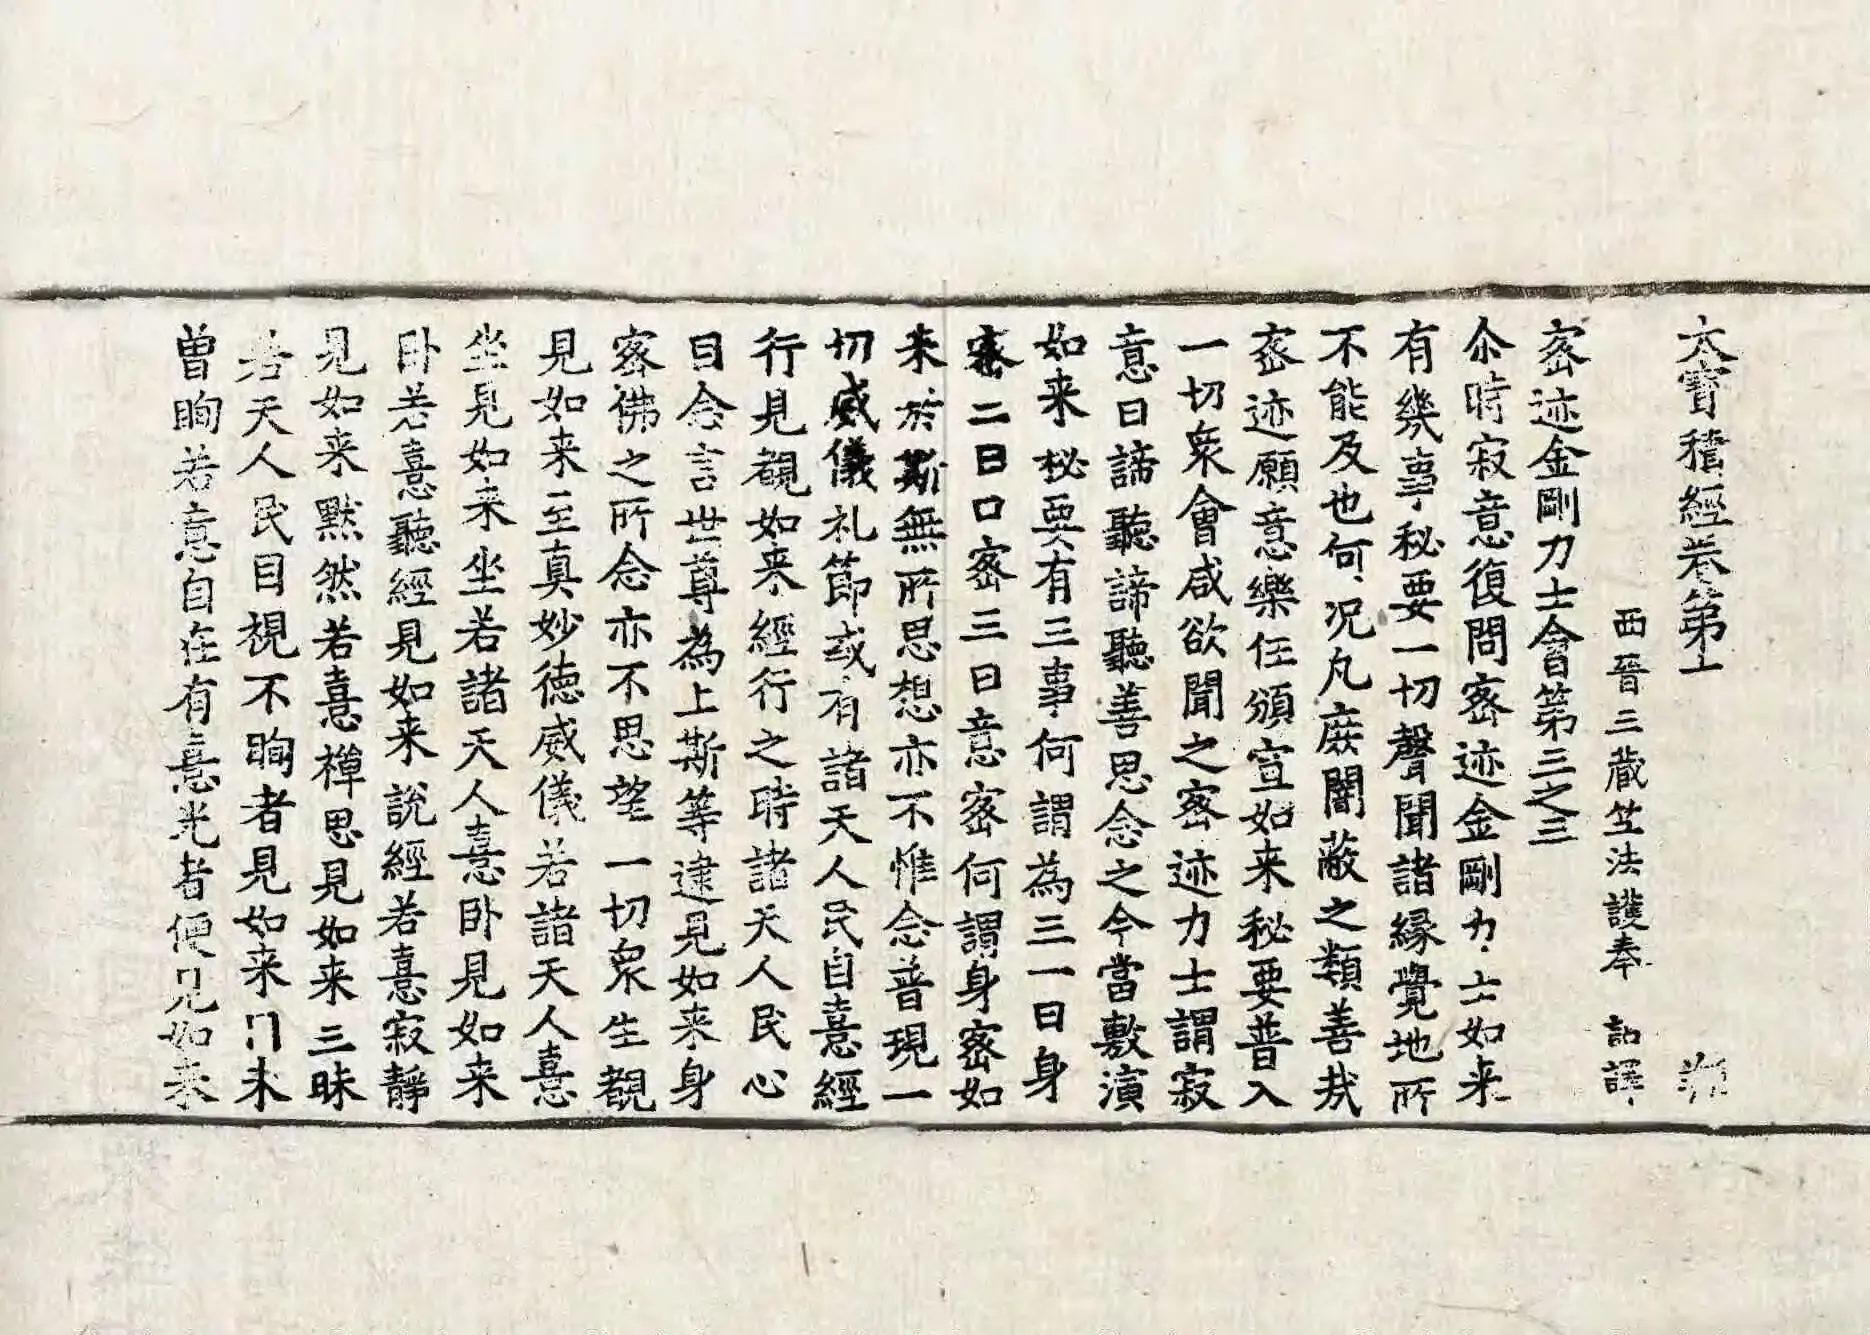 大寶積經卷第十
西晉三藏竺法護奉 詔譯
密迹金剛力士會第三之三
尒時寂意復問密迹金剛力士如来
有幾事秘要一切聲聞諸緣覺地所
不能及也何况凡庻闇蔽之類善哉
密迹願意樂任頒宣如来秘要普入
一切衆會咸欲聞之密迹力士謂寂
意曰諦聽諦聽善思念之今當敷演
如来秘要有三事何謂為三一曰身
密二曰口密三曰意密何謂身密如
来於斯無所思想亦不惟念普現一
切威儀礼節或有諸天人民自憙經
行見覩如来經行之時諸天人民心
自念言世尊為上斯等逮見如来身
密佛之所念亦不思望一切衆生覩
見如来至真妙徳威儀若諸天人憙
坐見如来坐若諸天人憙卧見如来
卧若憙聽經見如来說經若憙寂靜
見如来黙然若憙禪思見如来三昧
若天人民目視不眴者見如来目未
曽眴若意自在有憙光者便見如来